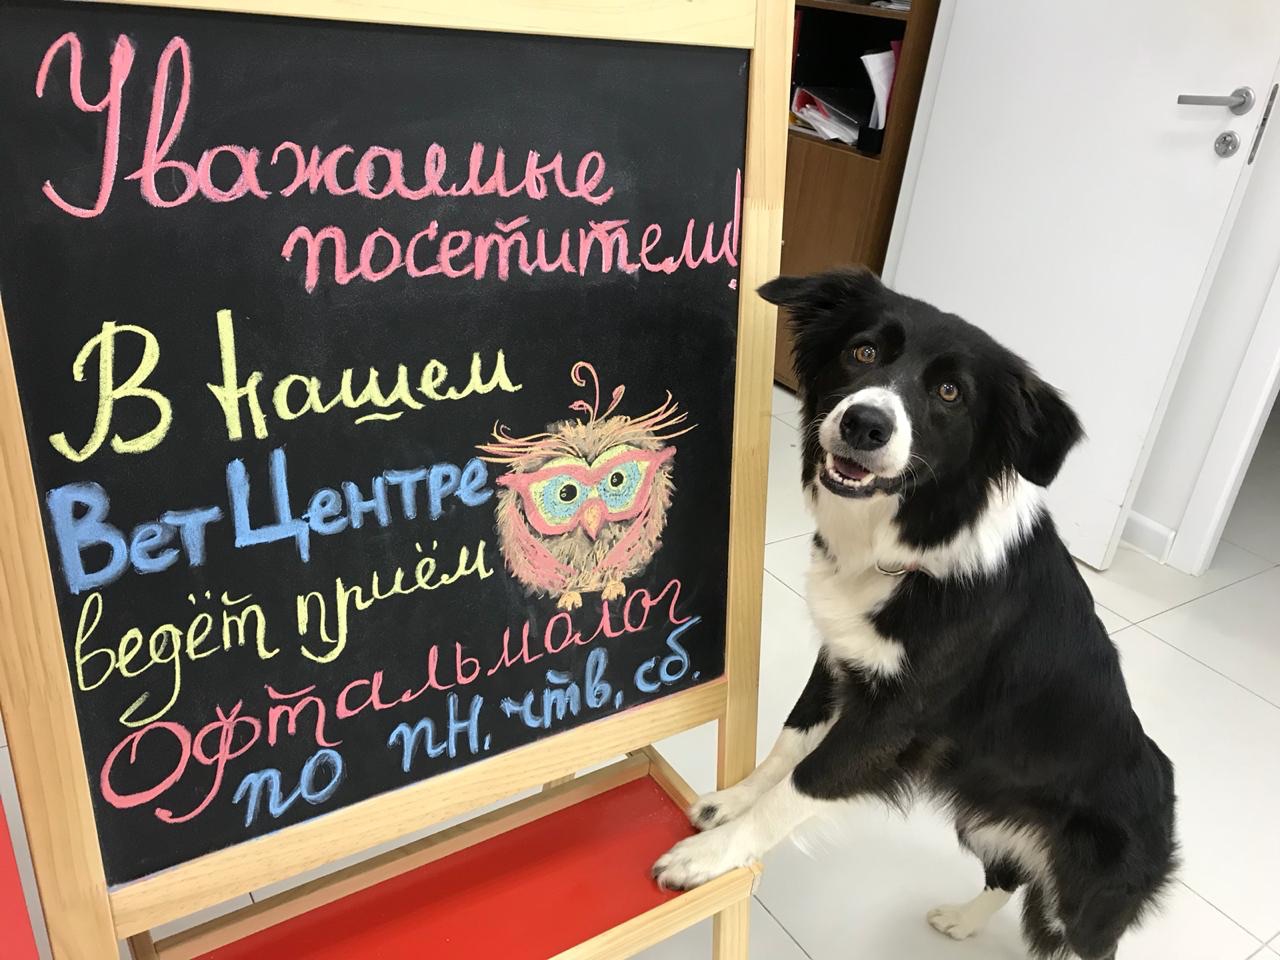 Уважаемые
посетители!
В нашем
ВетЦентре
ведёт приём
Офтальмолог
по пн, чтв, сб.